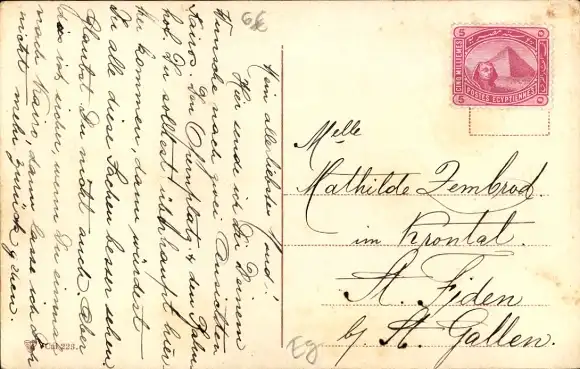 Mein allerliebster Kind!
Hier sende ich Dir Deinem
Wunsche nach zwei Ansichten
Kairos. Den Opernplatz & den Bahn-
hof. Du solltest überhaupt hier-
her kommen, dann würdest
Du alle diese Sachen besser sehen,
Glaubst Du nicht auch. Aber
das ist sicher, wenn Du einmal
nach Kairo, dann lasse ich Dich
nicht mehr zurück gehen
Cai 223.
66
5 5
CINQ MILLIEMES
POSTES EGYPTIENNES
5 ٥
Melle
Mathilde Zembrod.
im Krontal.
St. Fiden
b/ St. Gallen.
Eg.